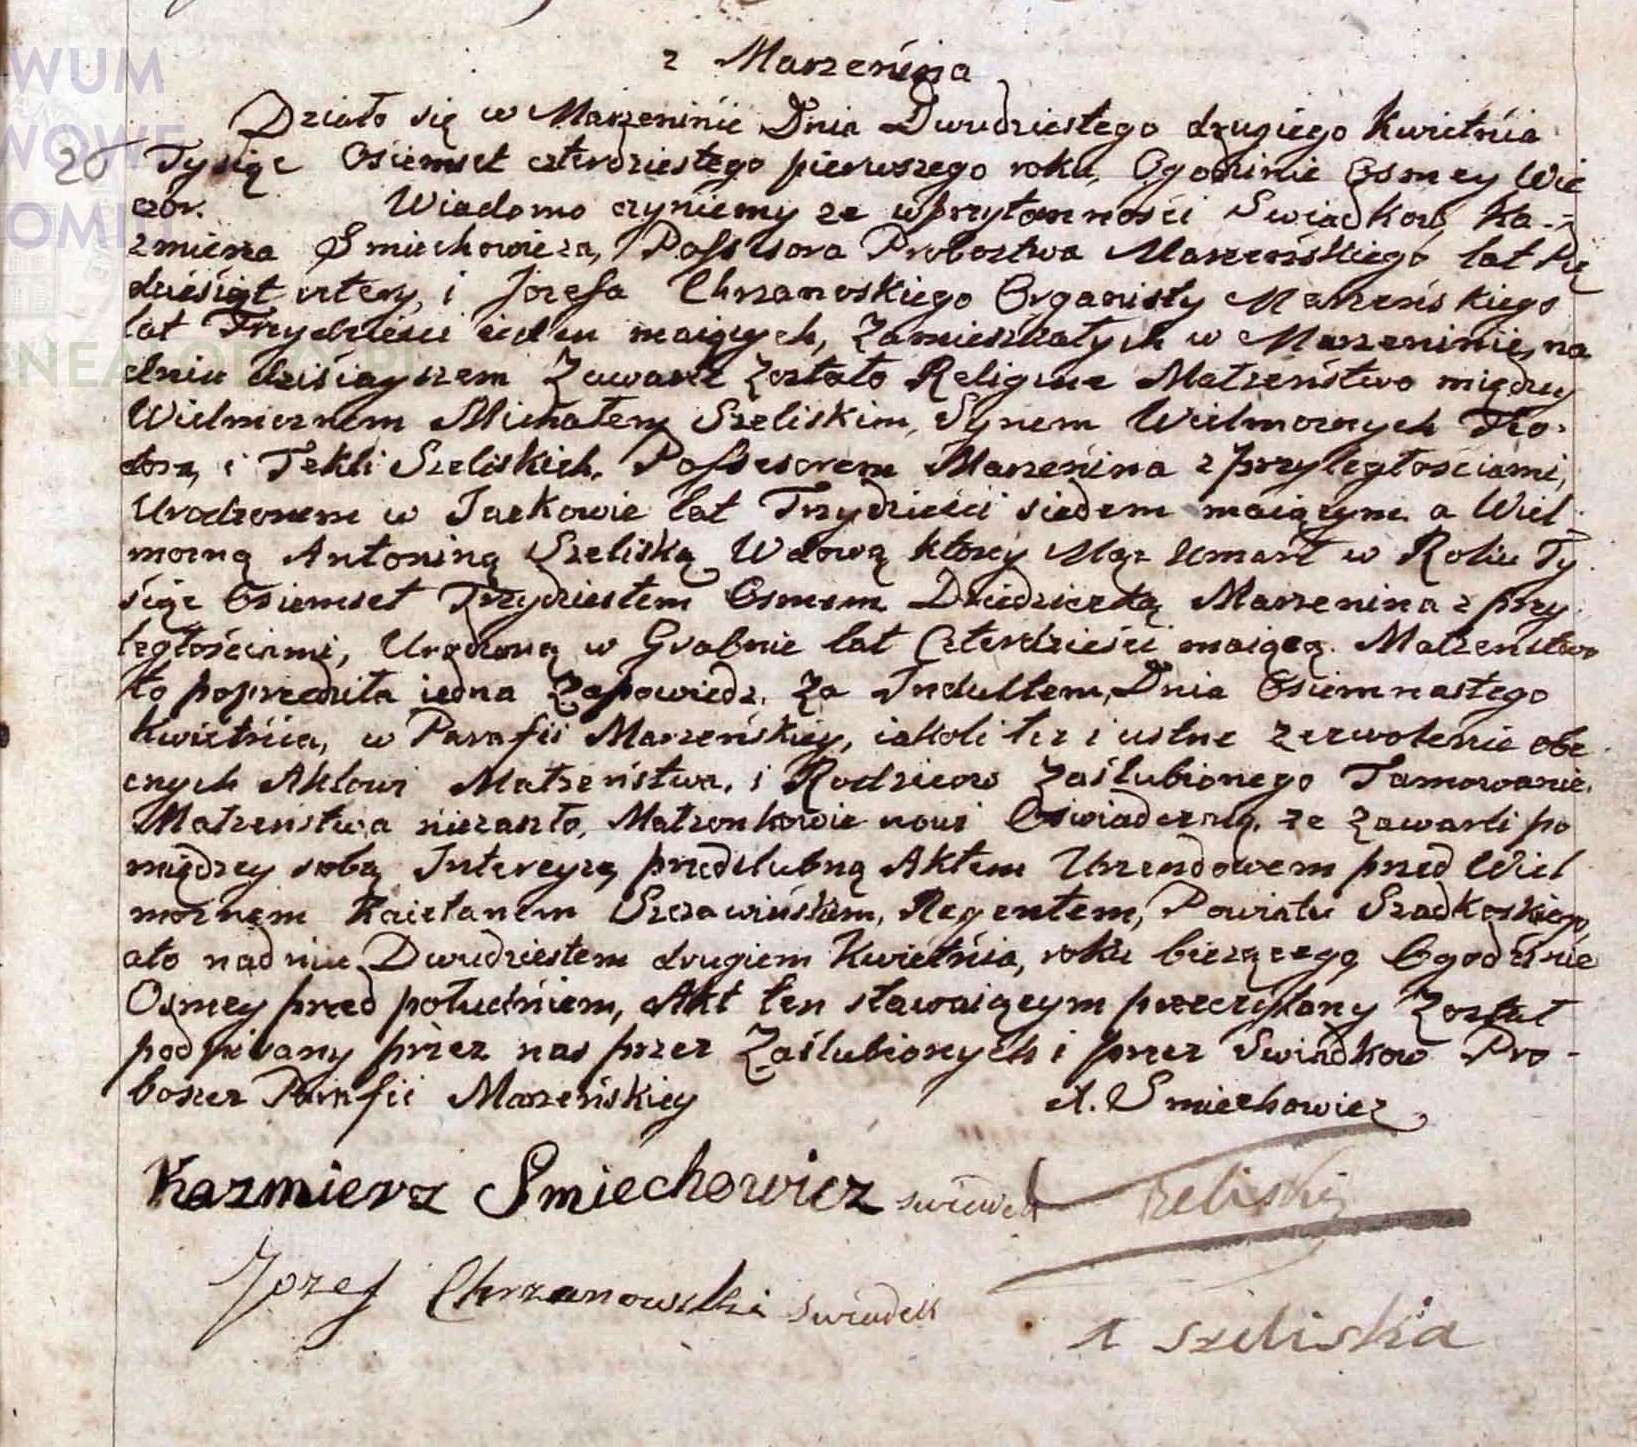 z Marzenina
Działo się w Marzeninie Dnia Dwudziestego drugiego Kwietnia
26 Tysiąc Osiemset czterdziestego pierwszego roku, Ogodzinie Osmey Wie
czor. Wiadomo czyniemy ze wprzytomnosci Swiadkow, Ka-
zmierza Smiechowicza, Possesora Probostwa Marzenskiego lat Pię
dziesiąt cztery, i Jozefa Chrzanoskiego Organisty Marzenskiego
lat Trzydziesci ieden maiących, Zamieszkałych w Marzeninie, na
dniu dzisiayszem Zawarte Zostało Religine Małzeństwo między
Wielmoznem Michałem Szeliskim, Synem Wielmoznych Teo-
dora, i Tekli Szeliskich, Possesorem Marzenina z przyległosciami,
Urodzonem w Jackowie lat Trzydzieści siedem maiącym a Wiel-
mozną Antoniną Szeliską Wdową ktorey Mąz Umarł w Roku Ty
siąc Osiemset Trzydziestem Osmem Dziedziczką Marzenina z przy
ległościami, Urodzoną w Grabnie lat Czterdzieści maiącą. Małzenstwo
to poprzedziła iedna Zapowiedz, za Indultem, Dnia Osiemnastego
Kwietnia, w Parafii Marzeńskiey, iakoli tez i ustne zezwolenie obe
cnych Aktowi Małzeństwa, i Rodzicow Zaślubionego Tamowanie
Małzeństwa niezaszło, Małzonkowie nowi Oswiadczaią, ze Zawarli po
między sobą Intercyzę przedslubną Aktem Urzendowem przed Wiel
moznem Kaietanem Szczawińskim, Regentem, Powiatu Szadkoskiego,
ato nadniu Dwudziestem drugiem Kwietnia, roku biezącego Ogodzinie
Osmey przed południem, Akt ten stawaiącym przeczytany Został
podpisany przez nas przez Zaślubionych i przez Swiadkow Pro-
boszcz Parafii Marzeńskiey A. Smiechowicz
Kazmierz Smiechowicz swiadek Szeliski
Jozef Chrzanowski swiadek
A Szeliska
WUM
WOWE
OMI
NEA